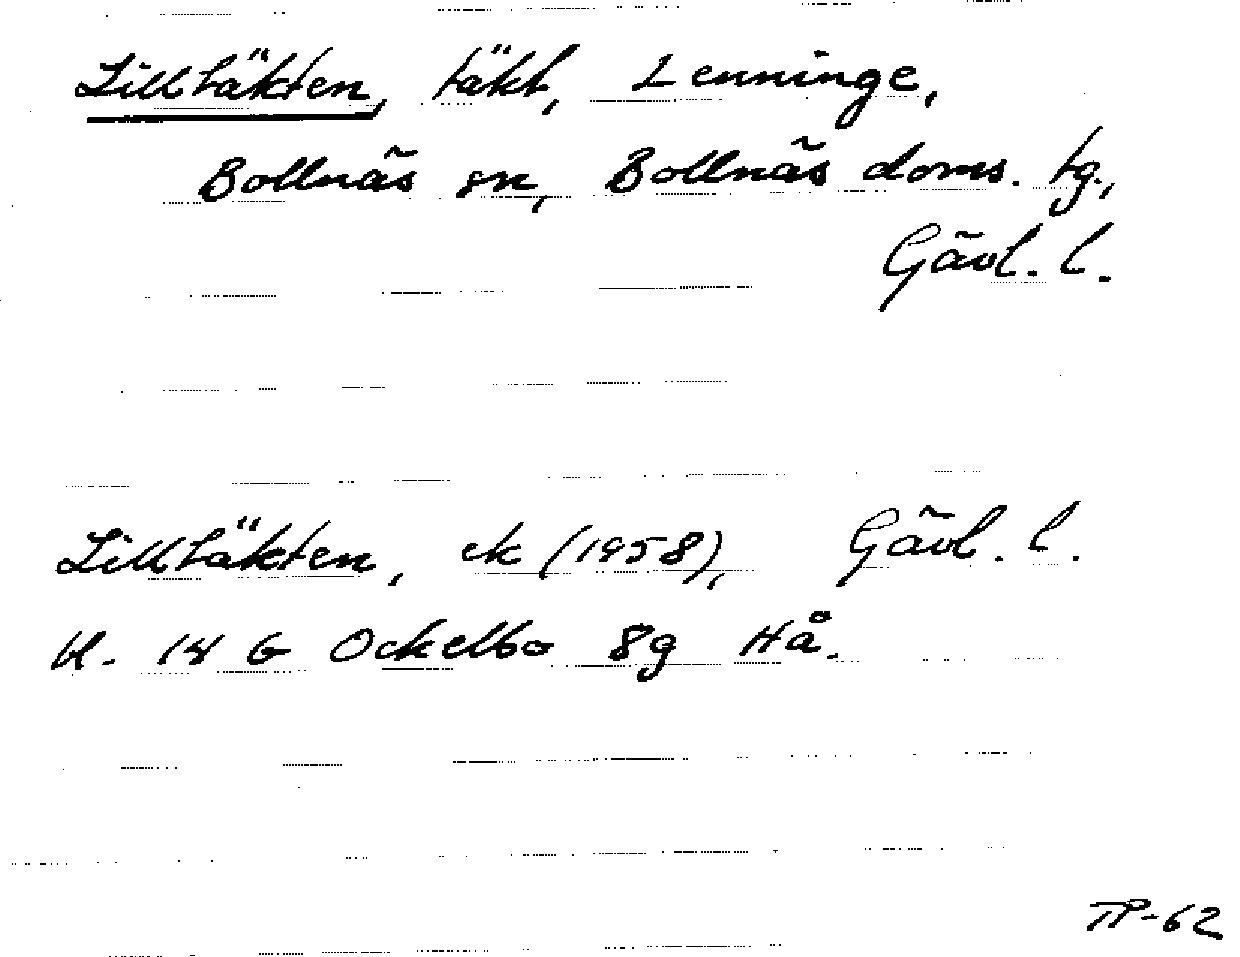 Lilltäkten, täkt, Lenninge,
Bollnäs sn, Bollnäs doms. tg.,
Gävl. l.
Lilltäkten, ek (1958), Gävl. l.
bl. 14 G Ockelbo 8g Hå.
TP-62